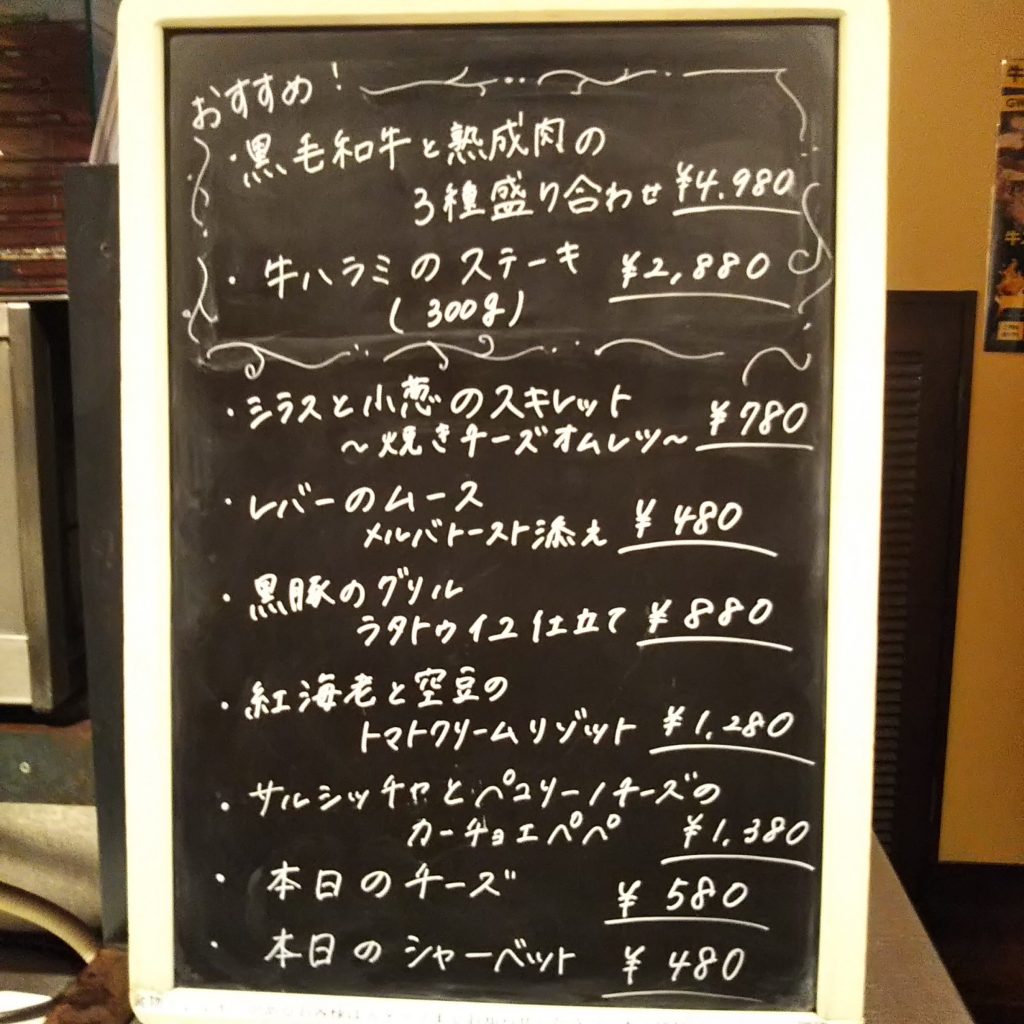 おすすめ！
・黒毛和牛と熟成肉の
3種盛り合わせ ¥4.980
・牛ハラミのステーキ ¥2,880
(300g)
・シラスと小葱のスキレット
～焼きチーズオムレツ～ ¥780
・レバーのムース
メルバトースト添え ¥480
・黒豚のグリル
ラタトゥイユ仕立て ¥880
・紅海老と空豆の
トマトクリームリゾット ¥1,280
・サルシッチャとペコリーノチーズの
カーチョエペペ ¥1,380
・本日のチーズ ¥580
・本日のシャーベット ¥480